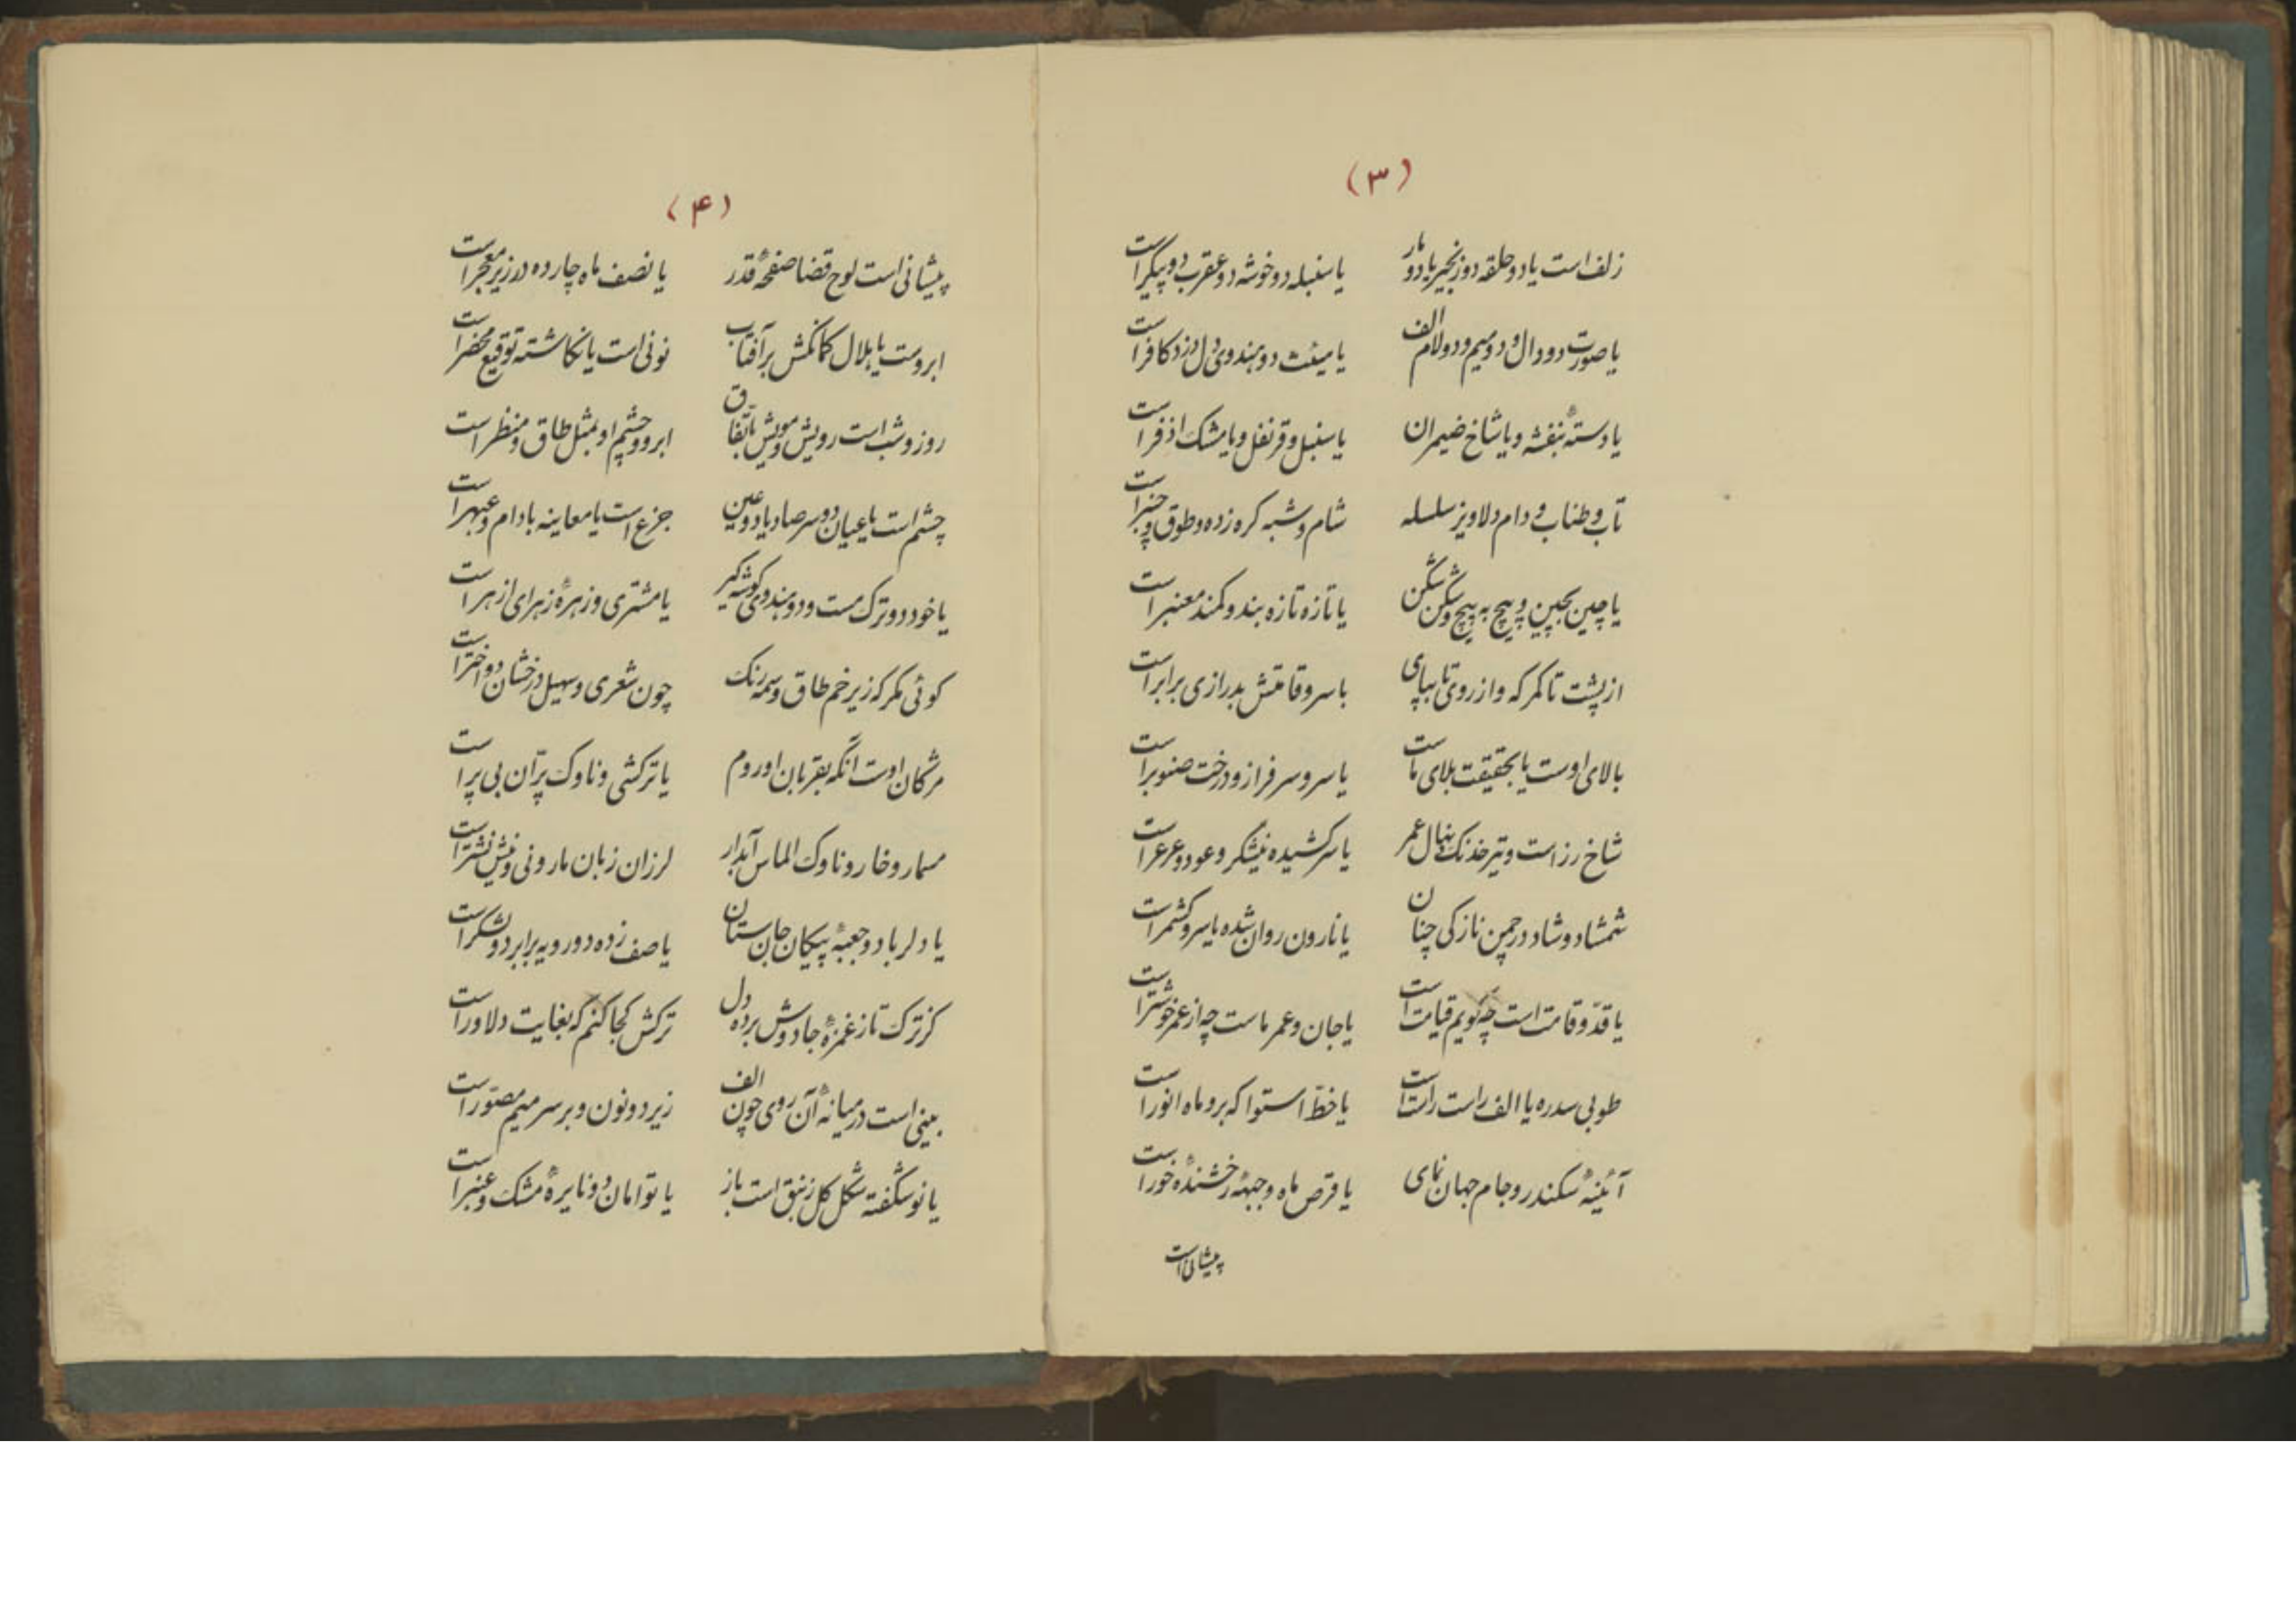 (۳)
زلف است یا دو حلقه دو زنجیر یا دو مار
یا سنبله دو خوشه دو عقرب دو پیکر است
یا صورت دو دال و دو میم و دو لام الف
یا هیئت دو هندوی دل دزد کافر است
یا دستهٔ بنفشه و یا شاخ ضیمران
یا سنبل و قرنفل و یا مشک اذفر است
تاب و طناب و دام دلاویز سلسله
شام و شبه کره زده و طوق و چنبر است
یا چین بچین و پیچ به پیچ و شکن شکن
یا تازه تازه بند و کمند معنبر است
از پشت تا کمرکه و از روی تا بپای
با سرو قامتش بدرازی برابر است
بالای اوست یا بحقیقت بلای ماست
یا سرو سرفراز و درخت صنوبر است
شاخ رز است و تیر خدنک نهال عمر
یا سرکشیده نیشکر و عود و عرعر است
شمشاد و شاد در چمن نازکی چنان
یا نارون روان شده یا سرو کشمر است
یا قدّ و قامت است چه کویم قیامت است
یا جان و عمر ماست چه از عمر خوشتر است
طوبی سدره یا الف راست راست است
یا خطّ استوا که برو ماه انور است
آئینهٔ سکندر و جام جهان نمای
یا قرص ماه و جبههٔ رخشندهٔ خور است
پیشانی است
(۴)
پیشانی است لوح قضا صفحهٔ قدر
یا نصف ماه چارده در زیر معجر است
ابروست یا هلال کمانکش بر آفتاب
نونی است یا نکاشته توقیع محضر است
روز و شب است رویش و مویش باتّفاق
ابرو و چشم او بمثل طاق و منظر است
چشم است یا عیان دو سر صاد یا دو عین
جزع است یا معاینه بادام و عبهر است
یا خود دو ترک مست و دو هندوی کوشه کیر
یا مشتری و زهرهٔ زهرای ازهر است
کوئی مکر که زیر خم طاق وسمه رنک
چون شعری و سهیل درخشان دو اختر است
مژکان اوست آنکه بقربان او روم
یا ترکشی و ناوک پرّان بی پر است
مسمار و خار و ناوک الماس آبدار
لرزان زبان مار و نی و نیش نشتر است
یا دلربا دو جعبهٔ پیکان جان ستان
یا صف زده دو رویه برابر دو لشکر است
کز ترک تاز غمزهٔ جادوش برده دل
ترکش کجا کنم که بغایت دلاور است
بینی است در میانهٔ آن روی چون الف
زیر دو نون و بر سر میم مصوّر است
یا نوشکفته شکل کل زنبق است باز
یا توامان دو نایرهٔ مشک و عنبر است